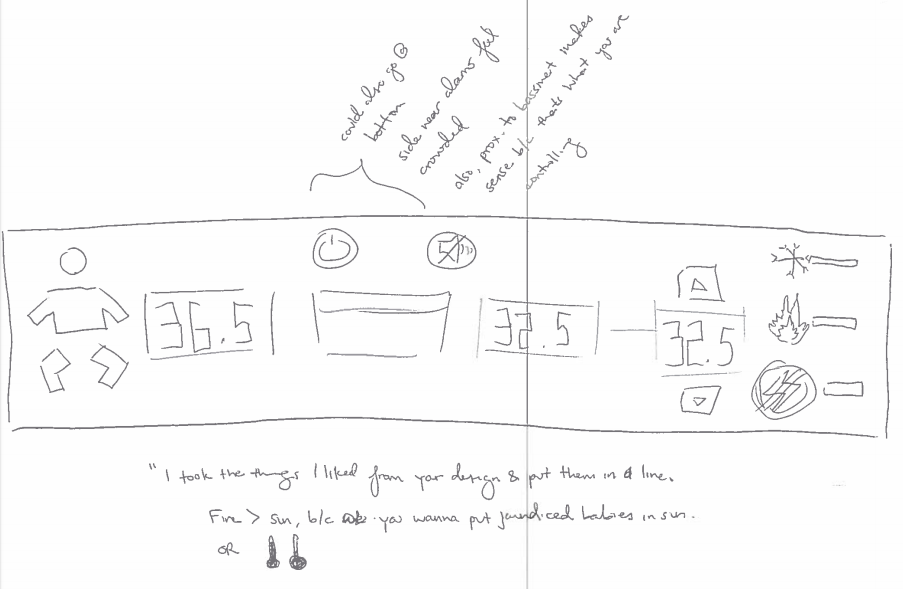 could also go @
bottom
side near alarms felt
crowded
also, prox. to bassinet makes
sense b/c that's what you are
controlling
36.5
32.5
32.5
"I took the things I liked from your design & put them in a line.
Fire > sun, b/c you wanna put jaundiced babies in sun.
OR